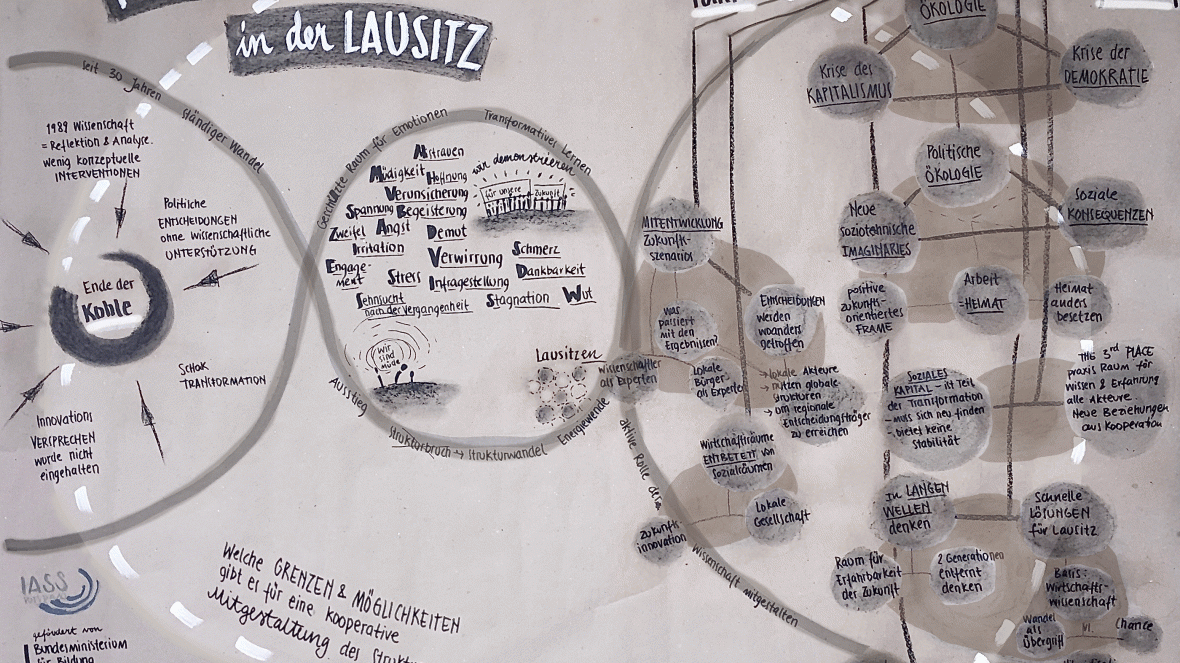 in der LAUSITZ
seit 30 Jahren
ständiger Wandel
1989 Wissenschaft
= Reflektion & Analyse.
wenig konzeptuelle
INTERVENTIONEN
Politische
ENTSCHEIDUNGEN
ohne wissenschaftliche
UNTERSTÜTZUNG
Ende der
Kohle
SCHOK
TRANSFORMATION
Innovations
VERSPRECHEN
wurde nicht
eingehalten
IASS
gefördert von
Bundesministerium
für Bildung
Welche GRENZEN & MÖGLICHKEITEN
gibt es für eine kooperative
Mitgestaltung des
Geschützte Raum für Emotionen
Transformatives Lernen
Misstrauen
Müdigkeit Hoffnung
Verunsicherung
Spannung Begeisterung
Zweifel Angst Demut
Irritation
Verwirrung Schmerz
Engage-
ment
Stress Infragestellung Dankbarkeit
Sehnsucht
nach der Vergangenheit
Stagnation Wut
wir demonstrieren
für unsere Zukunft
Wir
sind
müde
Lausitzen
Ausstieg
Strukturbruch → Strukturwandel
Energiewende
Wissenschaftler
als Experten
aktive Rolle der
Wissenschaft mitgestalten
MITENTWICKLUNG
Zukunfts-
szenarios
Was
passiert
mit den
Ergebnissen?
ENTSCHEIDUNGEN
werden
woanders
getroffen
Lokale
Bürger
als Experte
→ lokale Akteure
→ nutzen globale
Strukturen
→ om regionale
Entscheidungsträger
zu erreichen
Wirtschaftsräume
ENTBETETT von
Sozialräumen
Zukunfts
innovation
Lokale
Gesellschaft
ÖKOLOGIE
Krise des
KAPITALISMUS
Krise der
DEMOKRATIE
Politische
ÖKOLOGIE
Neue
soziotechnische
IMAGINARIES
Soziale
KONSEQUENZEN
positive
zukunfts-
orientiertes
FRAME
Arbeit
=HEIMAT
Heimat
anders
besetzen
SOZIALES
KAPITAL - ist Teil
der Transformation
- muss sich neu finden
- bietet keine
Stabilität
THE 3rd PLACE
praxis Raum für
Wissen & Erfahrung
alle Akteure
Neue Beziehungen
aus Kooperation
In LANGEN
WELLEN
denken
Schnelle
LÖSUNGEN
für Lausitz
Raum für
Erfahrbarkeit
der Zukunft
2 Generationen
entfernt
denken
Basis:
Wirtschafts-
wissenschaft
Wandel
als
Übergriff
vs.
Chance